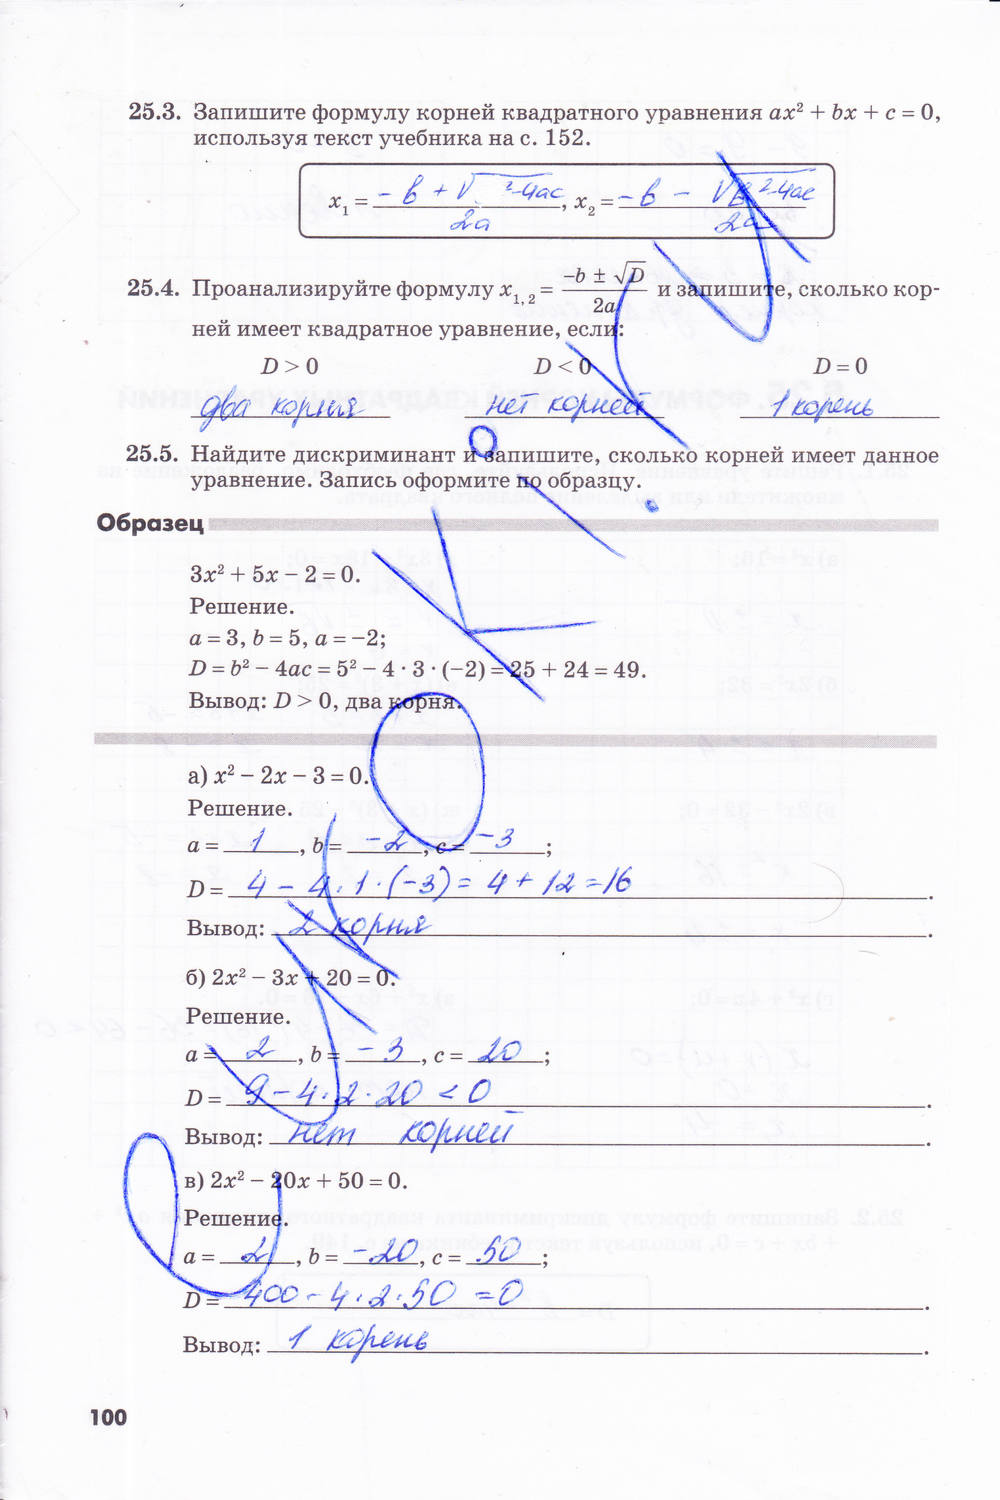 25.3. Запишите формулу корней квадратного уравнения ax² + bx + c = 0,
используя текст учебника на с. 152.
x₁ = (-в + √ ²-4ac)/2a, x₂ = (-в - √в²-4ac)/2a
25.4. Проанализируйте формулу x₁,₂ = (-b ± √D)/2a и запишите, сколько кор-
ней имеет квадратное уравнение, если:
D > 0 D < 0 D = 0
два корня нет корней 1 корень
25.5. Найдите дискриминант и запишите, сколько корней имеет данное
уравнение. Запись оформите по образцу.
Образец
3x² + 5x − 2 = 0.
Решение.
a = 3, b = 5, a = −2;
D = b² − 4ac = 5² − 4 · 3 · (−2) = 25 + 24 = 49.
Вывод: D > 0, два корня.
а) x² − 2x − 3 = 0.
Решение.
a = 1, b = -2, c = -3;
D = 4 - 4·1·(-3) = 4 + 12 = 16.
Вывод: 2 корня.
б) 2x² − 3x + 20 = 0.
Решение.
a = 2, b = -3, c = 20;
D = 9 - 4·2·20 < 0.
Вывод: нет корней.
в) 2x² − 20x + 50 = 0.
Решение.
a = 2, b = -20, c = 50;
D = 400 - 4·2·50 = 0.
Вывод: 1 корень.
100